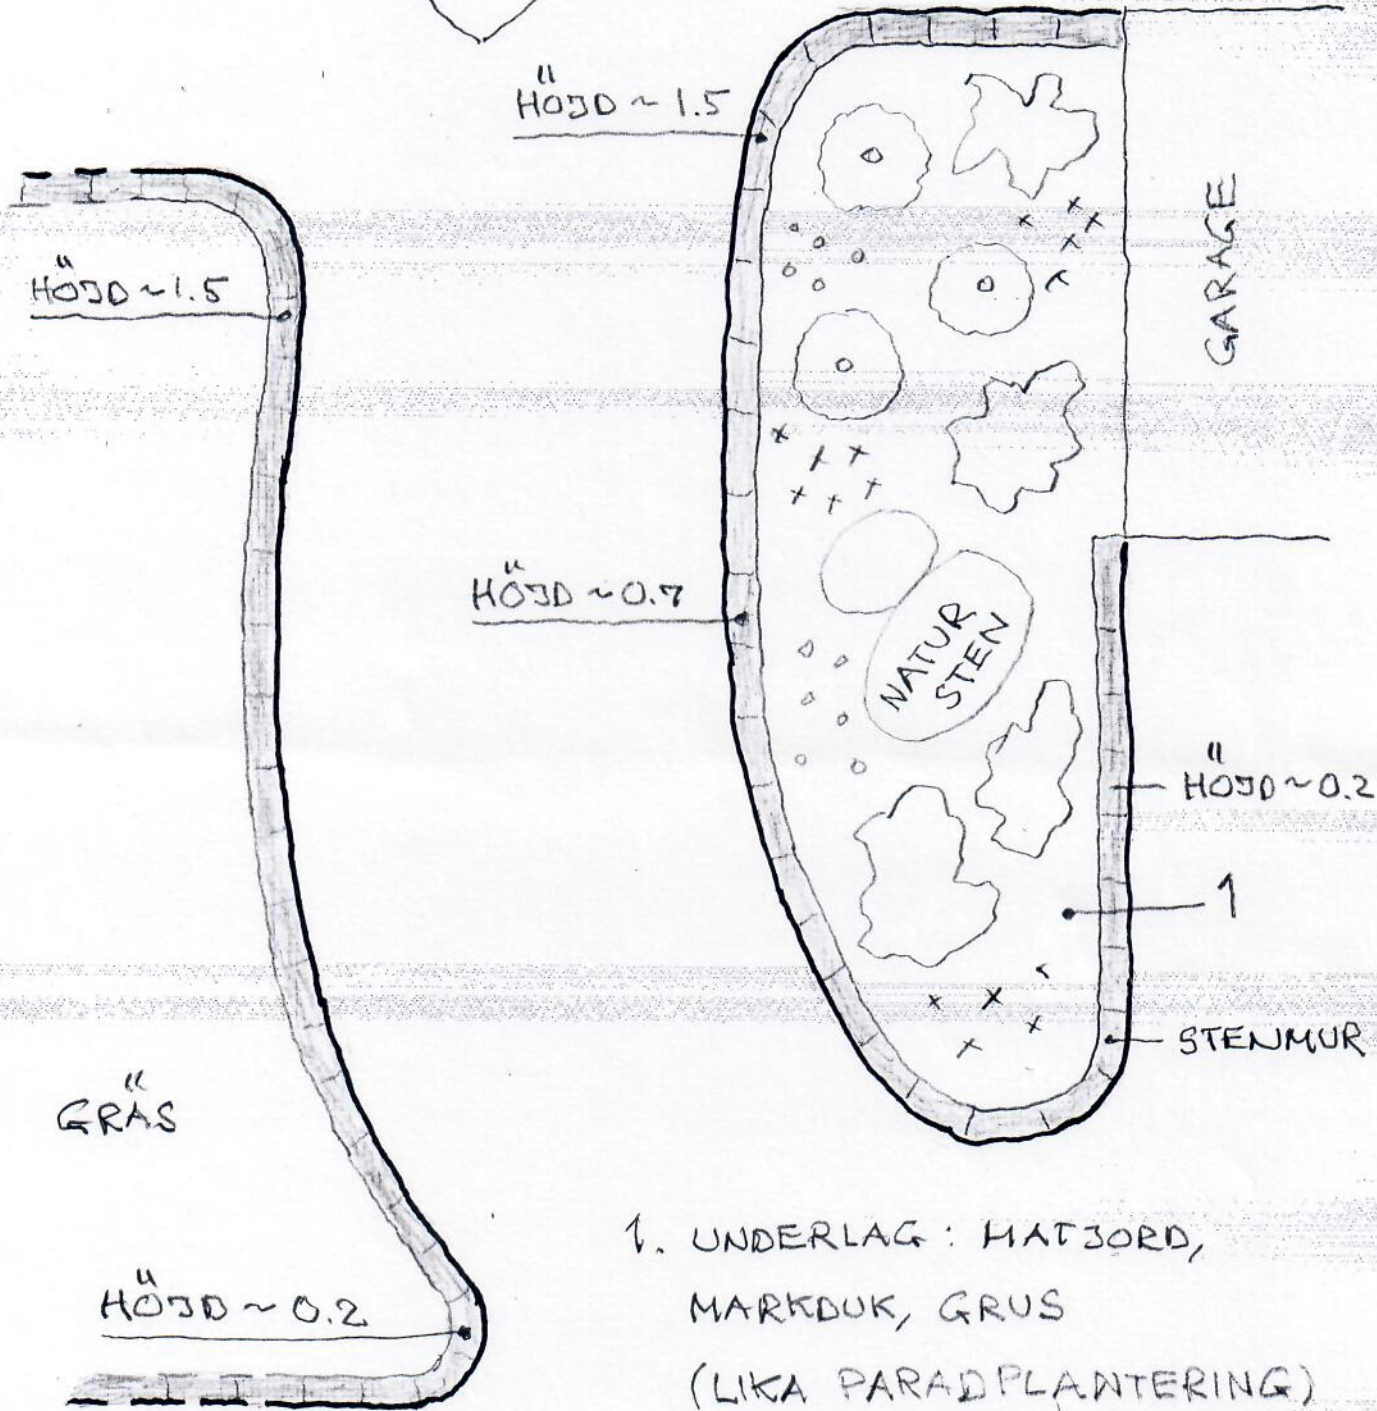 HÖJD ~ 1.5
HÖJD ~ 1.5
GARAGE
HÖJD ~ 0.7
NATUR
STEN
HÖJD ~ 0.2
1
STENMUR
GRÄS
HÖJD ~ 0.2
1. UNDERLAG : MATJORD,
MARKDUK, GRUS
(LIKA PARADPLANTERING)